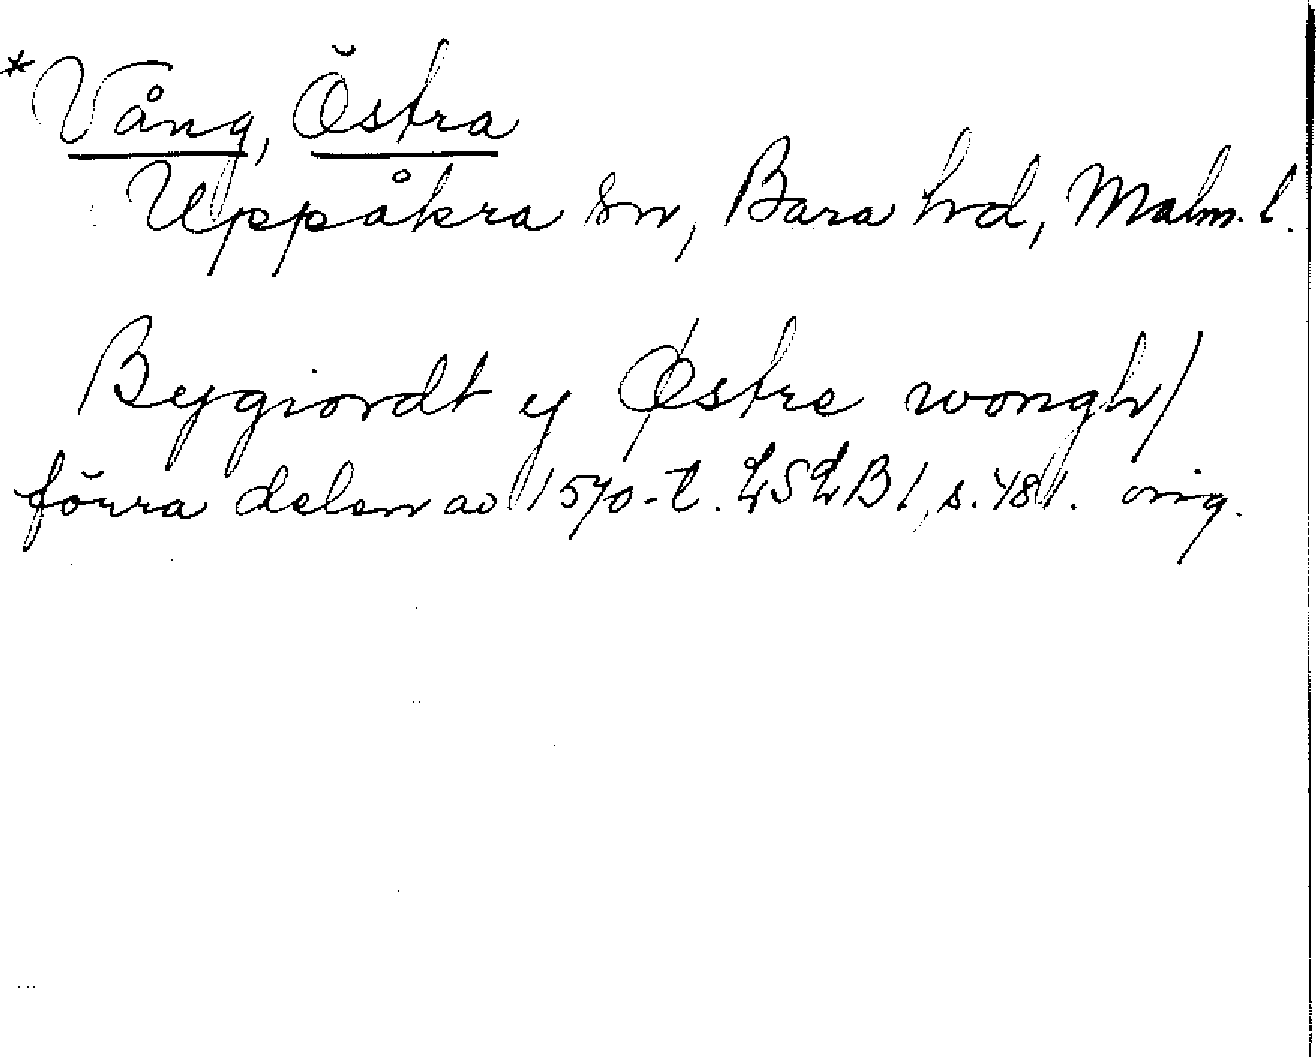 *Vång, Östra
Uppåkra sn, Bara hd, Malm. l.
Bygiordt y Østre wongh/
förra delen av 1570-t. LSLB 1, s. 481. orig.